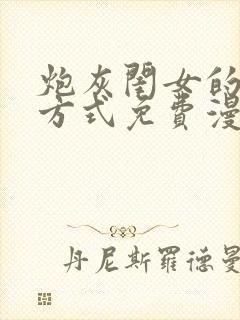 炮灰閨女的
方式免費漫
丹尼斯羅德曼